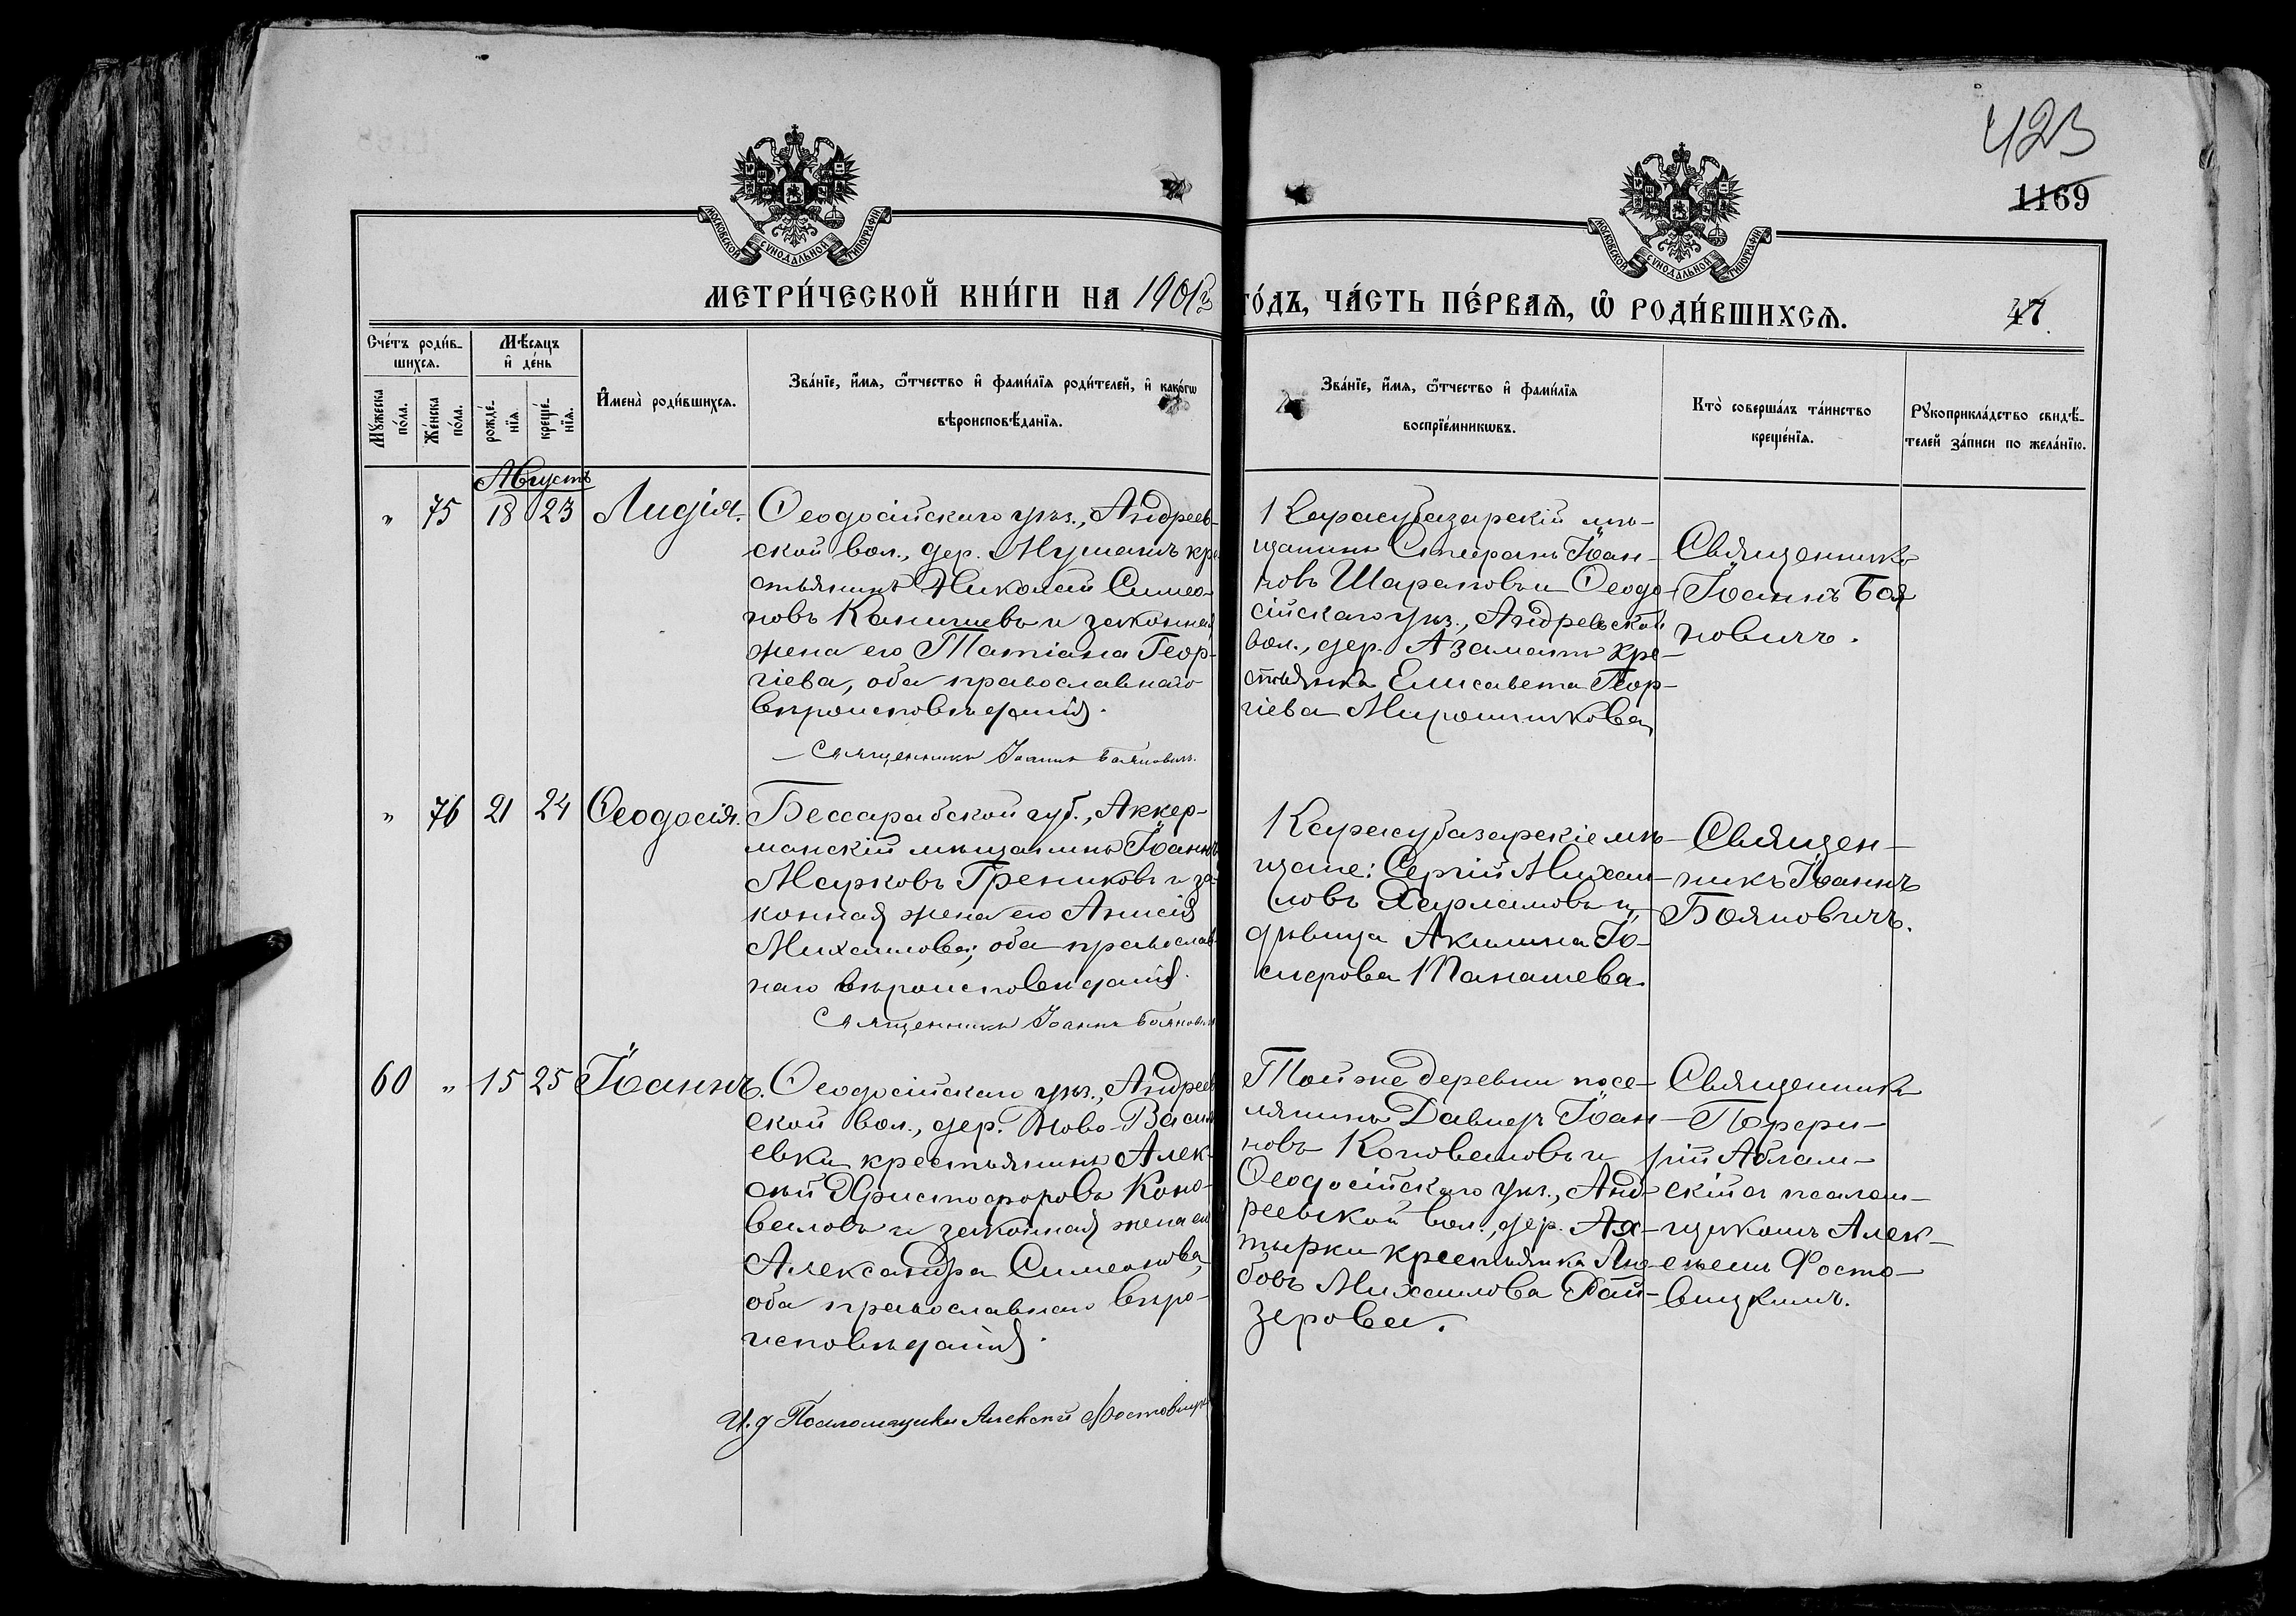 423
1169
МОСКОВСКОЙ СѴНОДАЛЬНОЙ ТИПОГРАФІИ
МОСКОВСКОЙ СѴНОДАЛЬНОЙ ТИПОГРАФІИ
МЕТРИ́ЧЕСКОЙ КНИ́ГИ НА 1901
ГО́ДЪ, ЧА́СТЬ ПЕ́РВАѦ, Ѿ РОДИ́ВШИХСѦ.
47.
Сче́тъ роди́в-
шихсѧ.
Мꙋжеска по́ла.
Же́нска по́ла.
Мѣ́сѧцъ
и҆ де́нь
рожде́-
нїѧ.
креще́-
нїѧ.
И҆мена̀ роди́вшихсѧ.
Зва́нїе, и҆́мѧ, ѻ҆́тчество и҆ фами́лїѧ роди́телей, и҆ како́гѡ
вѣроисповѣ́данїѧ.
Зва́нїе, и҆́мѧ, ѻ҆́тчество и҆ фами́лїѧ
воспрїе́мникѡвъ.
Кто̀ соверша́лъ та́инство
креще́нїѧ.
Рꙋкоприкла́дство свидѣ́-
телей за́писи по жела́нїю.
Августъ
" 75 18 23 Лидія.
Ѳеодосійскаго уѣз., Андреев-
ской вол., дер. Мушашъ кре
стьянинъ Николай Симео-
новъ Канишевъ и законная
жена его Татіана Геор-
гіева, оба православнаго
вѣроисповѣданія.
Священникъ Іоаннъ Бояновичъ.
Карасубазарскій мѣ-
щанинъ Стефанъ Іоан-
новъ Шараповъ и Ѳеодо
сійскаго уѣз., Андреевской
вол., дер. Азаматъ кре-
стьянка Елисавета Геор-
гіева Мирошникова
Священникъ
Іоаннъ Боя
новичъ.
" 76 21 24 Ѳеодосія.
Бессарабской губ., Аккер-
манскій мѣщанинъ Іоаннъ
Марковъ Грениковъ и за-
конная жена его Анисія
Михаилова; оба православ-
наго вѣроисповѣданія.
Священникъ Іоаннъ Бояновичъ
Карасубазарскіе мѣ-
щане: Сергій Михаи-
ловъ Харламовъ и
дѣвица Акилина Іо-
сифова Танашева.
Священ-
никъ Іоаннъ
Бояновичъ.
60 " 15 25 Іоаннъ.
Ѳеодосійскаго уѣз., Андреев
ской вол., дер. Ново-Васил
евки крестьянинъ Алек-
сѣй Христофоровъ Коно-
валовъ и законная жена его
Александра Симеонова,
оба православнаго вѣро-
исповѣданія.
И. д Псаломщика Алексѣй Фостовицкій
Той же деревни посе-
лянинъ Давидъ Іоан-
новъ Коноваловъ и
Ѳеодосійскаго уѣз., Анд-
реевской вол., дер. Ах-
тырки крестьянка Лю-
бовь Михаилова Рай-
зерова.
Священникъ
Порфи-
рій Аблам-
скій съ псалом-
щикомъ Алек-
сѣемъ Фосто-
вицкимъ.